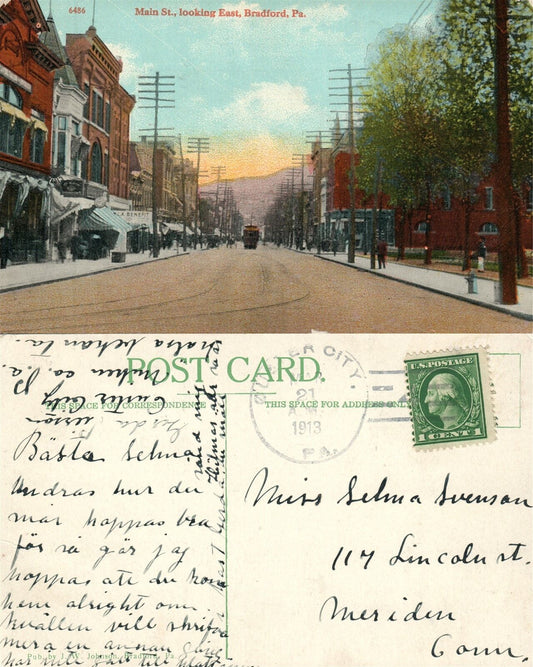 6486
Main St., looking East, Bradford, Pa.
POST CARD.
THIS SPACE FOR CORRESPONDENCE
THIS SPACE FOR ADDRESS ONLY
CUSTER CITY,
21
1913
PA.
U.S. POSTAGE
1 CENT 1
Bästa Selma
Undras hur du
mår hoppas bra
för så gör jag
hoppas ate du kom
hem alright om
kvällen vill skrifva
mera en annan gång
Custer City
Miss Selma Svenson
117 Lincoln st.
Meriden
Conn.
Pub. by J. W. Johnson, Bradford, Pa.